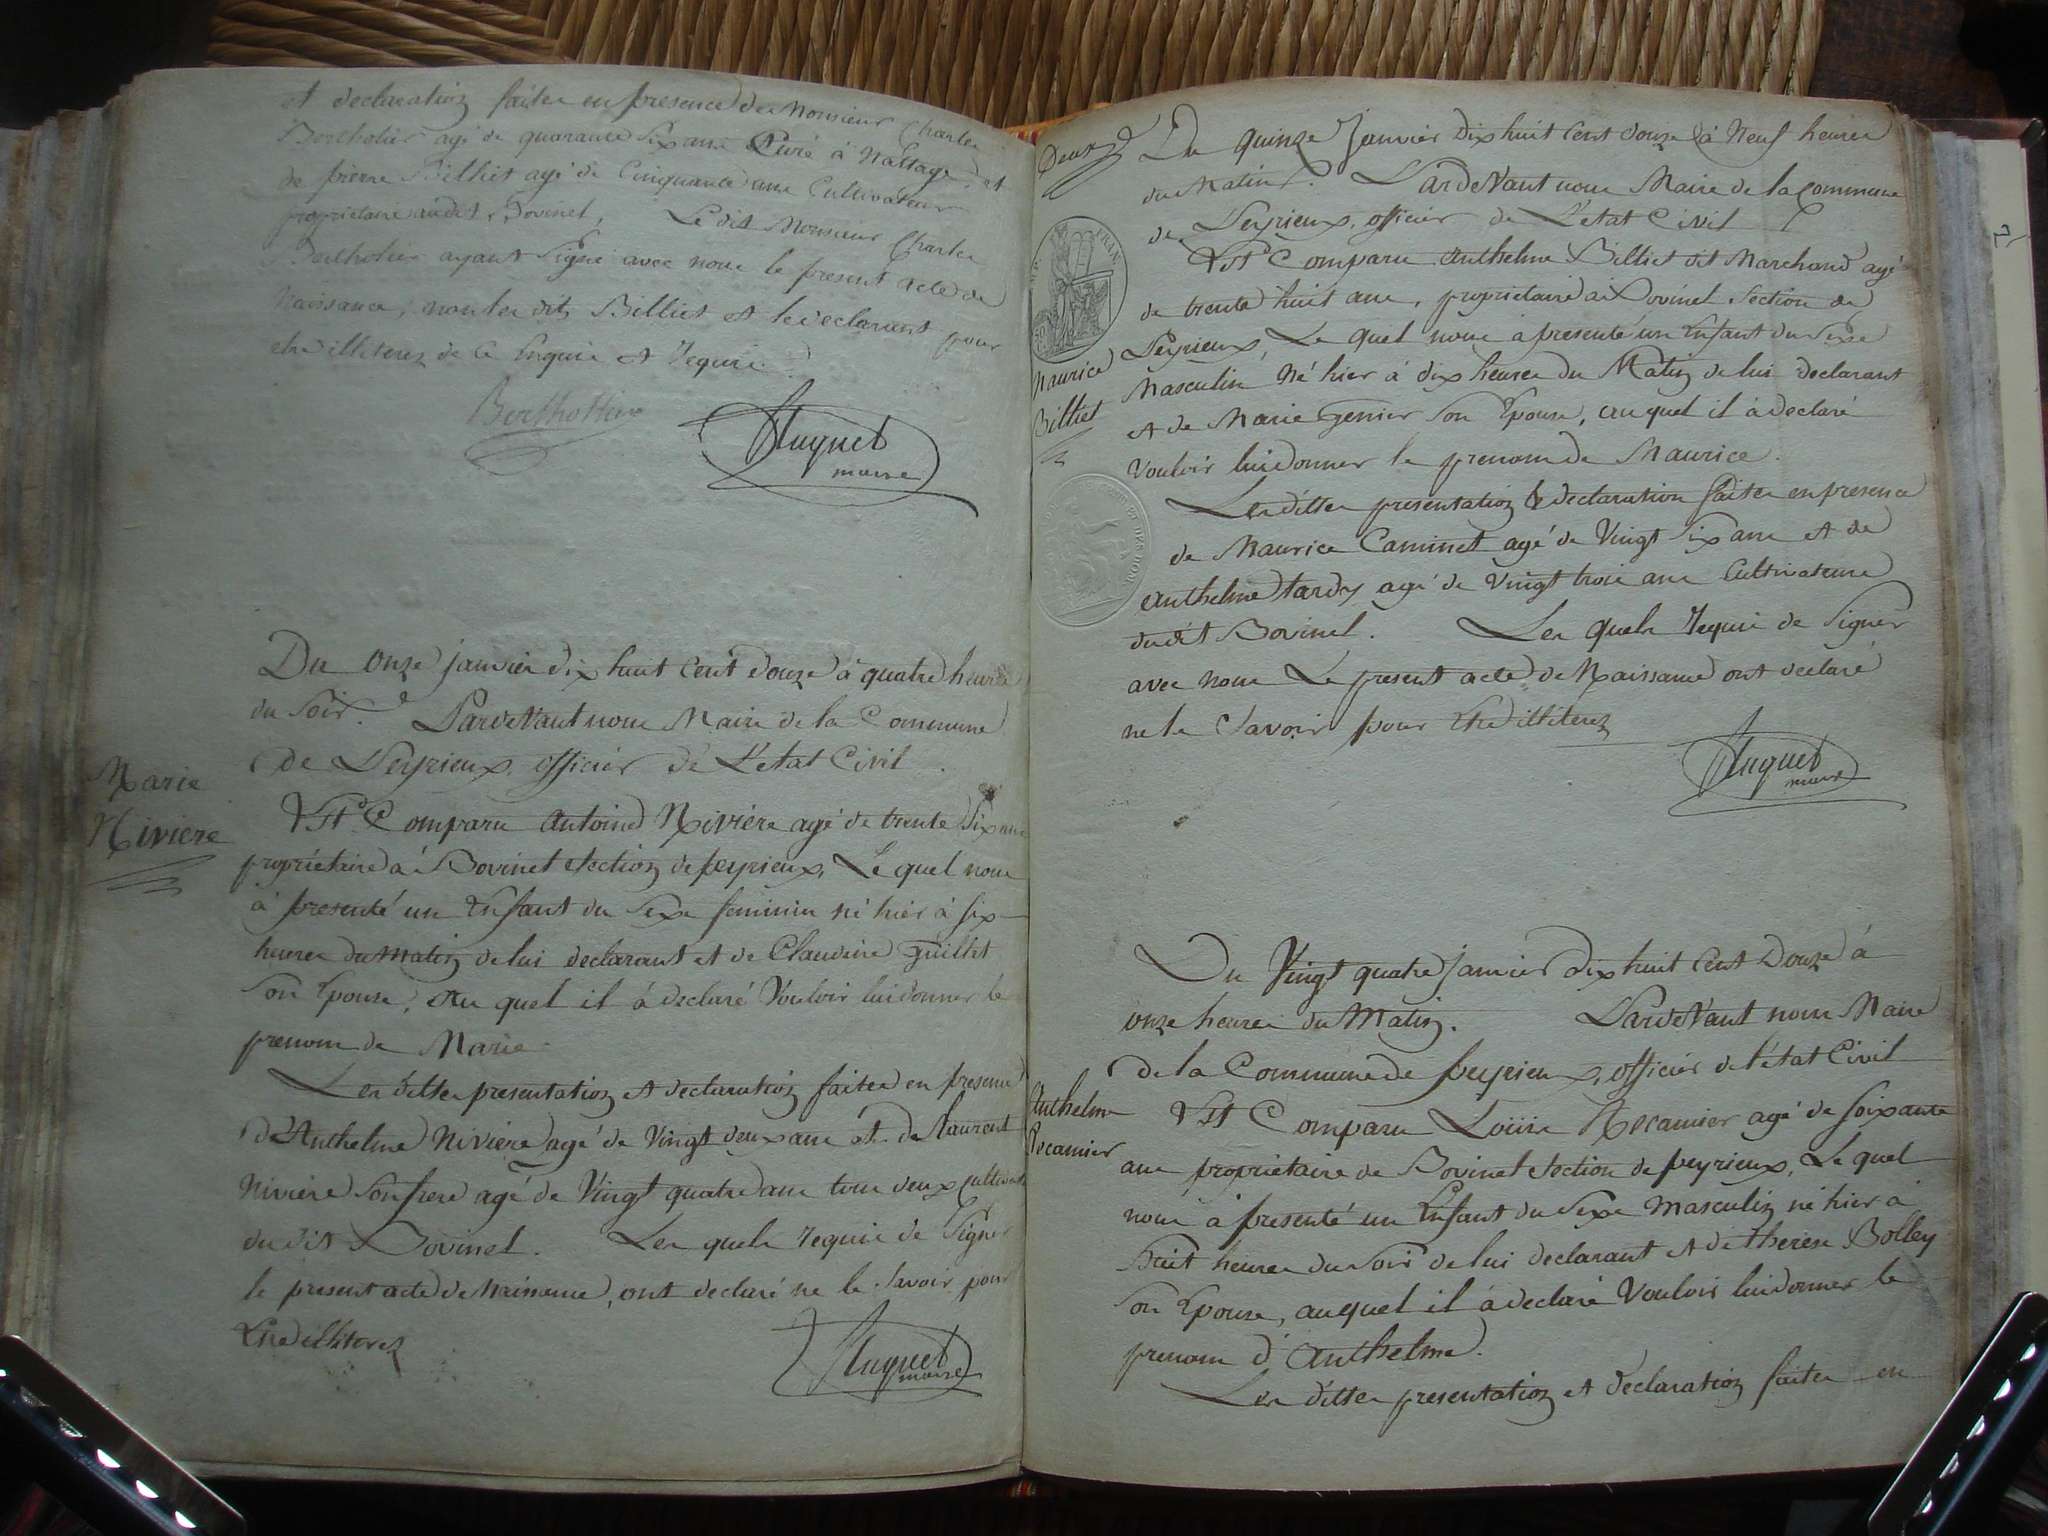 et declaration faites en presence de Monsieur Charles
Bertholier agé de quarante Six ans Curé à Nattage, et
de pierre Billiet agé de Cinquante ans Cultivateur
proprietaire audit Bovinel, Le dit Monsieur Charles
Bertholier ayant Signé avec nous le present acte de
Naissance, non les dits Billiet et le declarant pour
etre illiterez de ce Enquis et Requis.
Huguet
maire
Du Onze janvier dix huit Cent douze à quatre heures
du Soir. Pardevant nous Maire de la Commune
de Peyrieux, officier de L'etat Civil.
Marie
Nivière
Est Comparu Antoine Nivière agé de trente Six ans
proprietaire à Bovinel Section de peyrieux, Le quel nous
à presenté un Enfant du Sexe feminin né hier à Six
heures du Matin de lui declarant et de Claudine Guillet
Son Epouse, Au quel il à declaré Vouloir lui donner le
prenom de Marie
Les dittes presentation et declaration faites en presence
d'Anthelme Nivière agé de Vingt deux ans et de Laurent
Nivière Son frere agé de Vingt quatre ans tous deux Cultivat
du dit Bovinel. Les quels requis de Signer
le present acte de Naissance, ont declaré ne le Savoir pour
Etre illiterez
Huguet
maire
Deux
Du quinze Janvier Dix huit Cent douze à Neuf heures
du Matin. Pardevant nous Maire de la Commune
de Peyrieux, officier de L'etat Civil
FRAN.
Est Comparu Anthelme Billiet dit Marchand agé
de trente huit ans, proprietaire à Bovinel Section de
Peyrieux, Le quel nous à presenté un Enfant du Sexe
Maurice
Billiet
Masculin Né hier à dix heures du Matin de lui Declarant
et de Marie Genier Son Epouse, au quel il à declaré
Vouloir lui donner le prenom de Maurice.
Les dittes presentation & declaration faites en presence
de Maurice Caminet agé de Vingt Six ans et de
Anthelme tardy agé de Vingt trois ans Cultivateurs
dudit Bovinel. Les quels Requis de Signer
avec nous Le present acte de Naissance ont declaré
ne le Savoir pour Etre illiterez
Huguet
maire
Du Vingt quatre janvier Dix huit Cent Douze à
onze heures du Matin. Pardevant nous Maire
de la Commune de peyrieux, officier de l'état Civil
Anthelme
Recamier
Est Comparu Louis Recamier agé de Soixante
ans proprietaire de Bovinel Section de peyrieux, Le quel
nous à presenté un Enfant du Sexe Masculin né hier à
huit heures du Soir de lui declarant et de therese Bolley
Son Epouse, auquel il à declaré Vouloir lui donner le
prenom d'Anthelme.
Les dittes presentation et declaration faites en